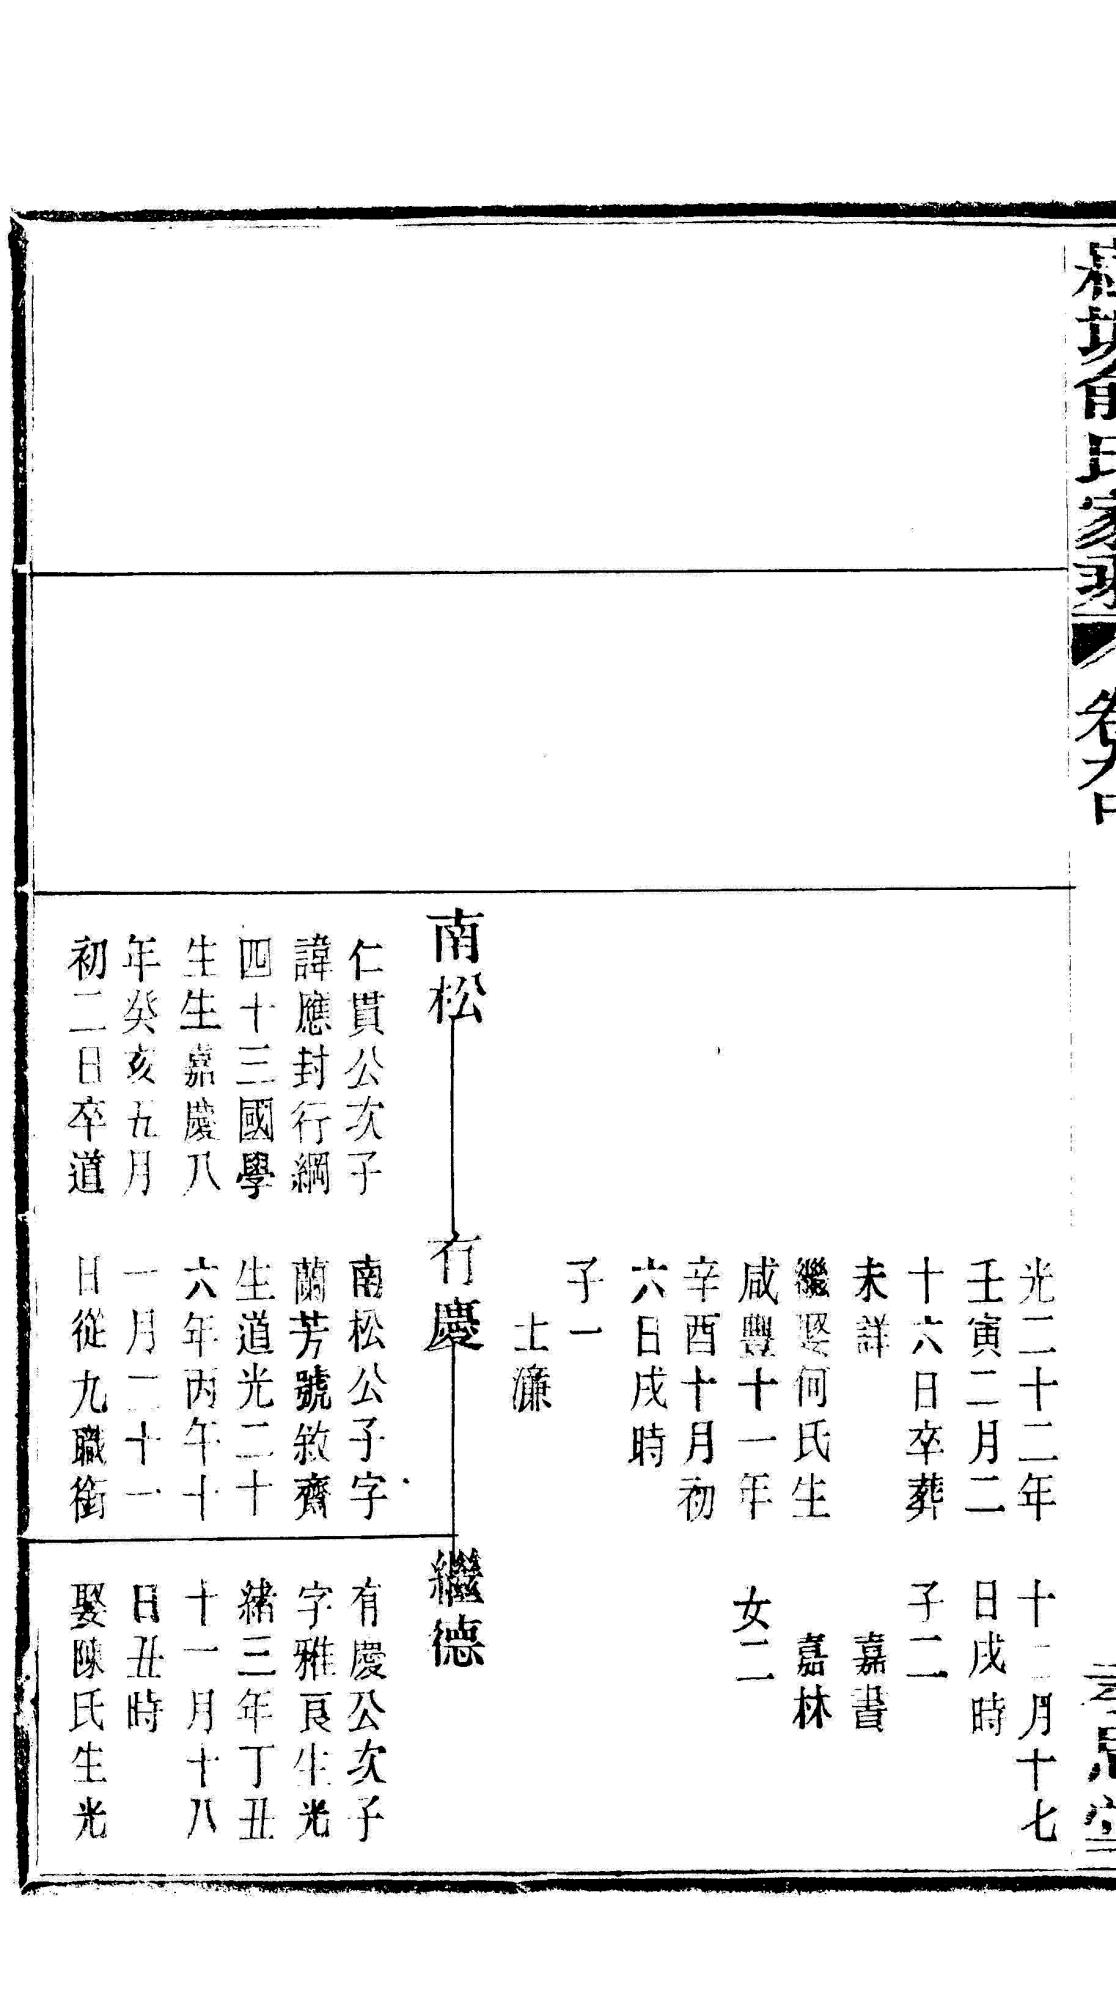 俞氏家乘
卷九中
孝思堂
南松
仁貫公次子
諱應封行綱
四十三國學
生生嘉慶八
年癸亥五月
初二日卒道
光二十二年
壬寅二月二
十六日卒葬
未詳
繼娶何氏生
咸豐十一年
辛酉十月初
六日戌時
子一
士濂
有慶
南松公子字
蘭芳號敘齋
生道光二十
六年丙午十
一月二十一
日從九職銜
十二月十七
日戌時
子二
嘉書
嘉林
女二
繼德
有慶公次子
字雅良生光
緒三年丁丑
十一月十八
日丑時
娶陳氏生光